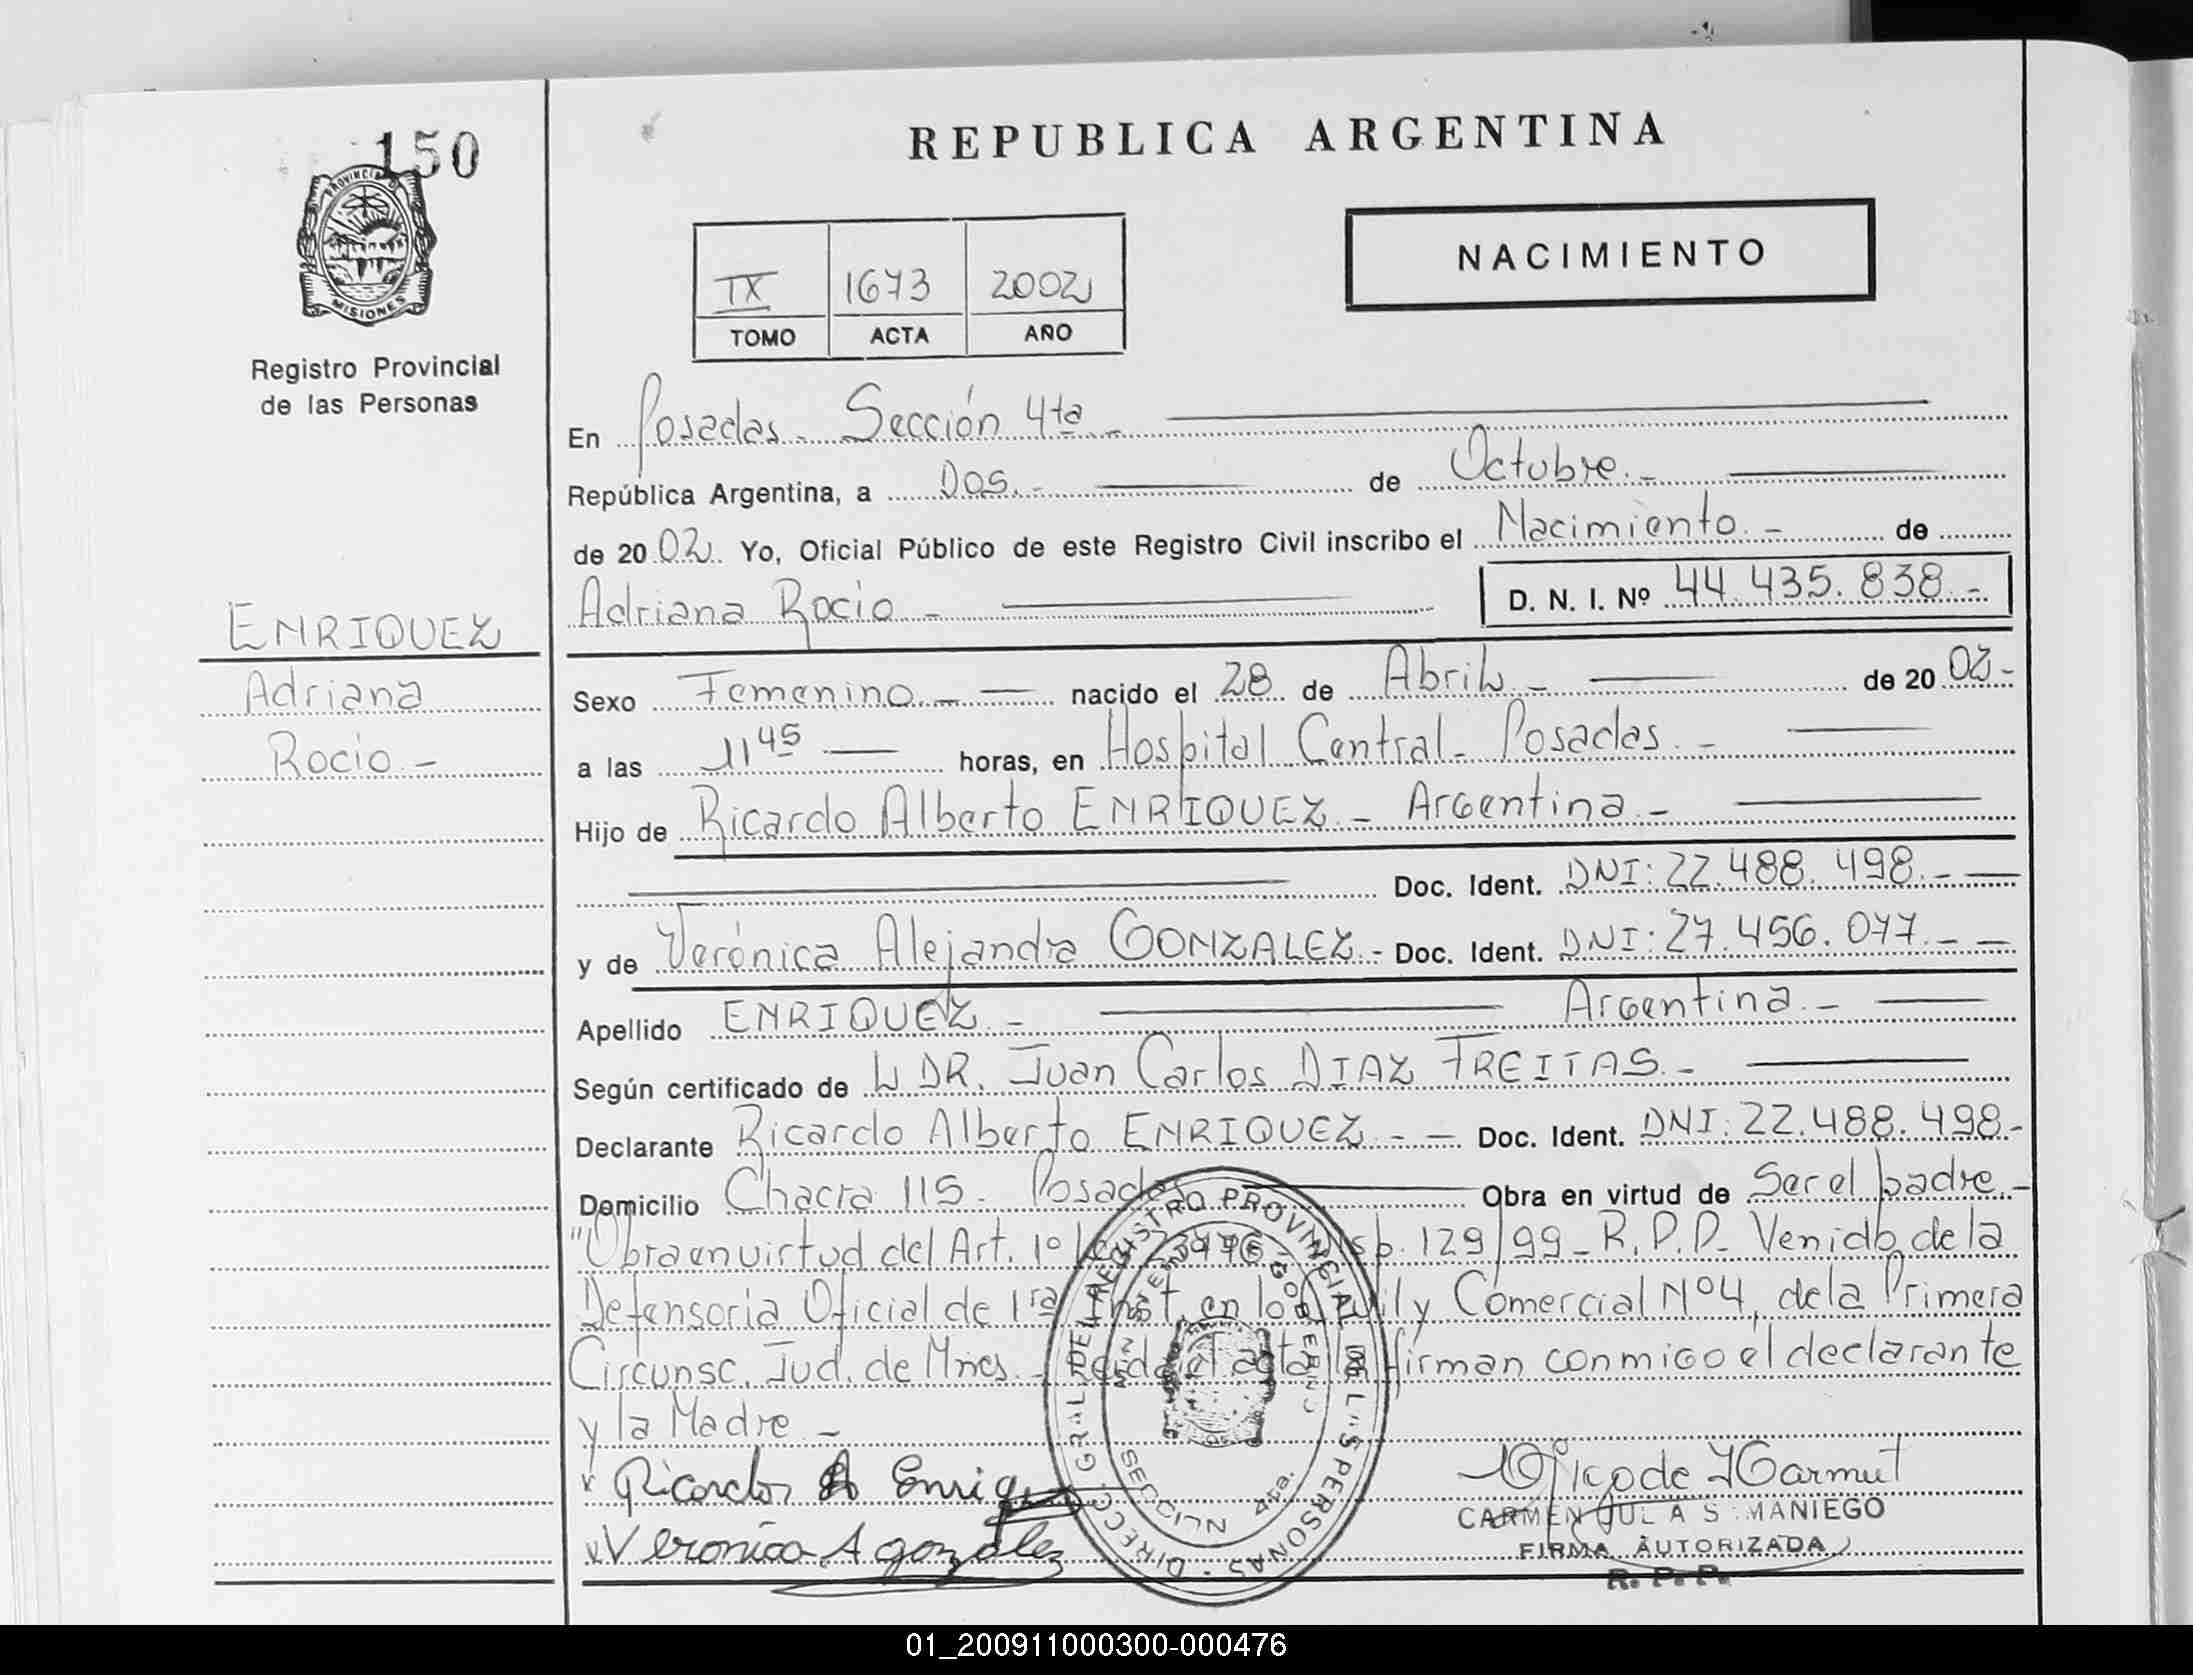 150
PROVINCIA DE
MISIONES
Registro Provincial
de las Personas
ENRIQUEZ
Adriana
Rocio -
REPUBLICA ARGENTINA
NACIMIENTO
IX 1673 2002
TOMO ACTA AÑO
En Posadas - Sección 4ta -
República Argentina, a Dos.- de Octubre.-
de 20 02 Yo, Oficial Público de este Registro Civil inscribo el Nacimiento.- de
Adriana Rocio - D. N. I. Nº 44.435.838.-
Sexo Femenino.- nacido el 28 de Abril - de 20 02-
a las 11 45 horas, en Hospital Central - Posadas.-
Hijo de Ricardo Alberto ENRIQUEZ - Argentina -
Doc. Ident. DNI: 22.488.498.-
y de Verónica Alejandra GONZALEZ - Doc. Ident. DNI: 27.456.077.-
Apellido ENRIQUEZ - Argentina -
Según certificado de DR. Juan Carlos DIAZ FREITAS.-
Declarante Ricardo Alberto ENRIQUEZ - - Doc. Ident. DNI: 22.488.498-
Domicilio Chacra 115 - Posadas Obra en virtud de Ser el padre -
"Obra en virtud del Art. 1º 129/99 - R.P.P. Venido de la
Defensoria Oficial de 1ra Inst. en lo Civil y Comercial Nº4, de la Primera
Circunsc. Jud. de Mnes. - Leida el acta la firman conmigo el declarante
y la Madre -
Ricardo A Enriquez
Veronica A gonzalez
DIRECC. GRAL. DEL REGISTRO PROVINCIAL DE LAS PERSONAS
SECCION 4ta.
CARMEN JULIA S MANIEGO
FIRMA AUTORIZADA
R. P. P.
01_200911000300-000476